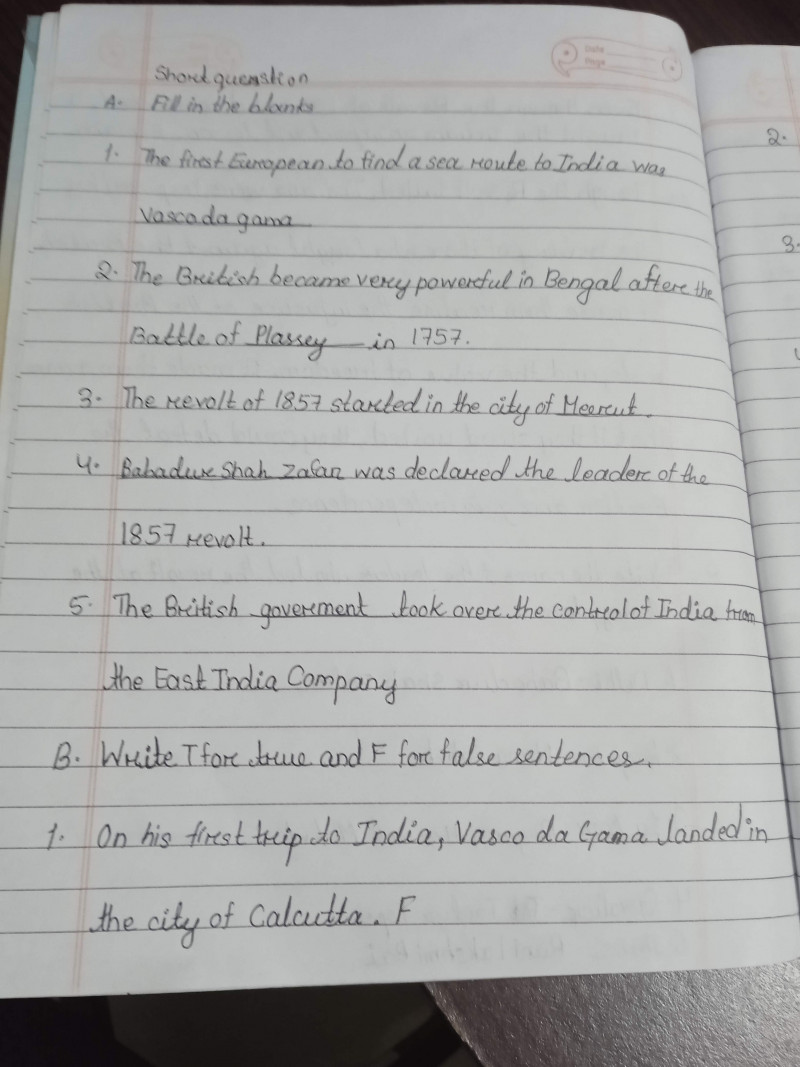 Date
Page
Short quenstion
A. Fill in the blanks
1. The first European to find a sea route to India was
Vasco da gama
2. The British became very powerful in Bengal after the
Battle of Plassey in 1757.
3. The revolt of 1857 started in the city of Meerut.
4. Bahadur Shah Zafar was declared the leader of the
1857 revolt.
5. The British goverment took over the control of India from
the East India Company
B. Write T for true and F for false sentences.
1. On his first trip to India, Vasco da Gama landed in
the city of Calcutta. F
2.
3.